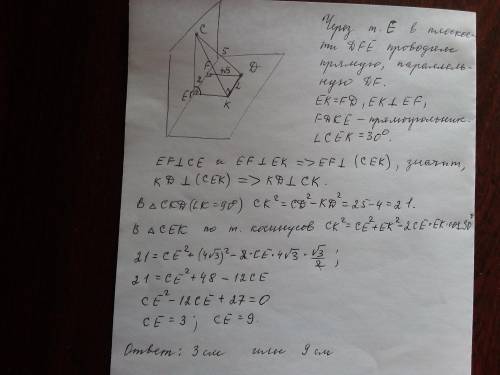 Через т. Е в плоскос-
ти DFE проводим
прямую, параллель-
ную DF.
EK=FD, EK⊥EF,
FDKE – прямоугольник.
∠CEK=30°.
C
F
5
4√3
D
2
2
E
K
EF⊥CE и EF⊥EK => EF⊥(CEK), значит,
KD⊥(CEK) => KD⊥CK.
В △CKD (∠K=90°) CK²=CD²-KD²=25-4=21.
В △CEK по т. косинусов CK²=CE²+EK²-2CE·EK·cos30°
21=CE²+(4√3)²-2·CE·4√3·√3/2;
21=CE²+48-12CE
CE²-12CE+27=0
CE=3; CE=9.
Ответ: 3см или 9 см